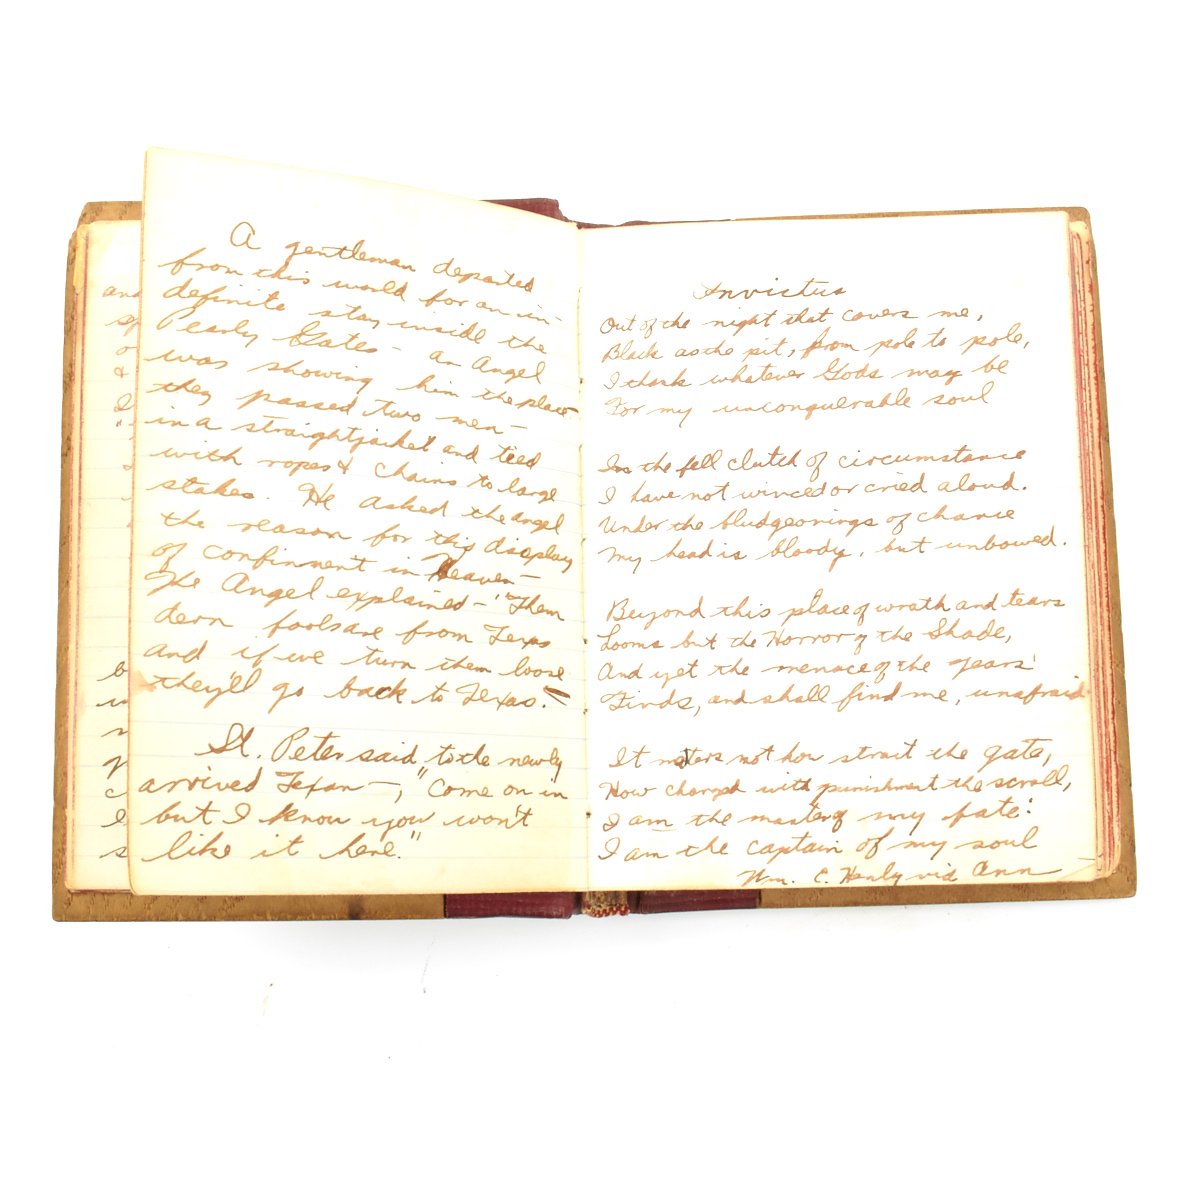 A gentleman departed
from this world for an in-
definite stay inside the
Pearly Gates - an Angel
was showing him the place
they passed two men -
in a straightjacket and tied
with ropes & chains to large
stakes. He asked the angel
the reason for this display
of confinment in Heaven -
The Angel explained - "Them
dern fools are from Texas
and if we turn them loose
they'll go back to Texas."
St. Peter said, to the newly
arrived Texan -, "Come on in
but I know you won't
like it here."
Invictus
Out of the night that covers me,
Black as the pit, from pole to pole,
I thank whatever Gods may be
For my unconquerable soul
In the fell clutch of circumstance
I have not winced or cried aloud.
Under the bludgeonings of chance
My head is bloody, but unbowed.
Beyond this place of wrath and tears
Looms but the Horror of the Shade,
And yet the menace of the years
Finds, and shall find me, unafraid
It matters not how strait the gate,
How charged with punishment the scroll,
I am the master of my fate:
I am the captain of my soul
Wm. E. Henly vid Ann